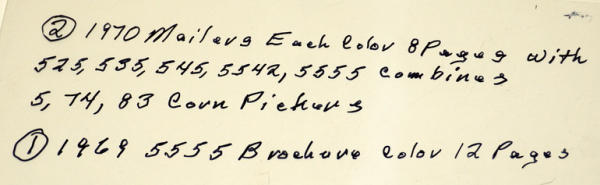 ② 1970 Mailers Each Color 8 Pages with
525, 535, 545, 5542, 5555 Combines
5, 74, 83 Corn Pickers
① 1969 5555 Brochure Color 12 Pages